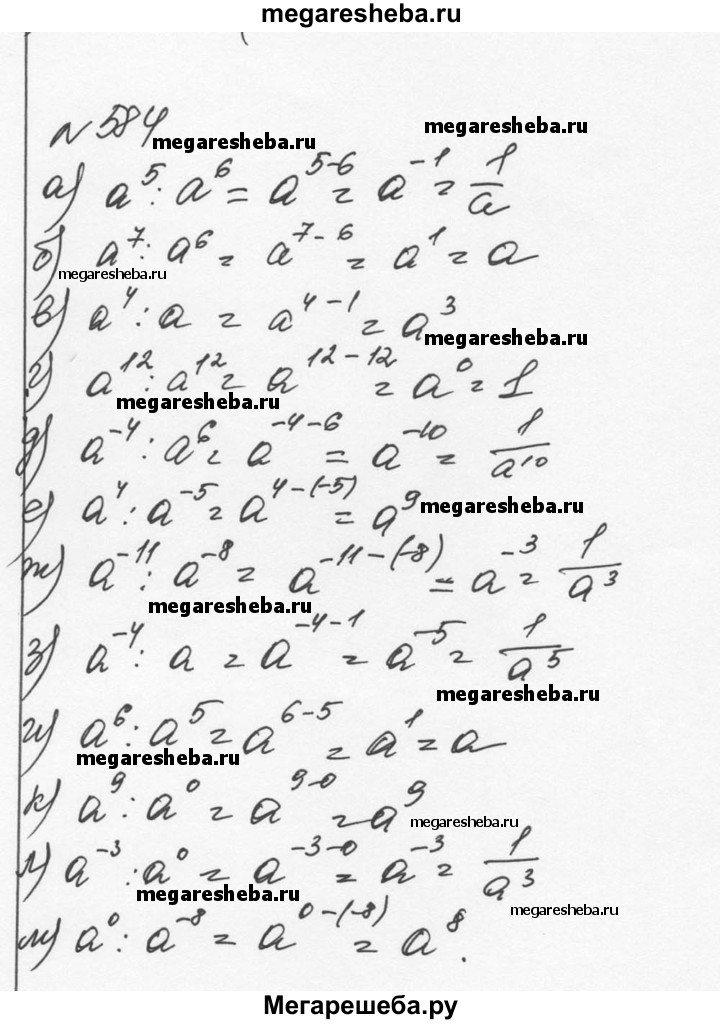 megaresheba.ru
№ 584
megaresheba.ru megaresheba.ru
а) a⁵ : a⁶ = a⁵⁻⁶ = a⁻¹ = 1/a
б) a⁷ : a⁶ = a⁷⁻⁶ = a¹ = a
megaresheba.ru
в) a⁴ : a = a⁴⁻¹ = a³
megaresheba.ru
г) a¹² : a¹² = a¹²⁻¹² = a⁰ = 1
megaresheba.ru
д) a⁻⁴ : a⁶ = a⁻⁴⁻⁶ = a⁻¹⁰ = 1/a¹⁰
е) a⁴ : a⁻⁵ = a⁴⁻⁽⁻⁵⁾ = a⁹
megaresheba.ru
ж) a⁻¹¹ : a⁻⁸ = a⁻¹¹⁻⁽⁻⁸⁾ = a⁻³ = 1/a³
megaresheba.ru
з) a⁻⁴ : a = a⁻⁴⁻¹ = a⁻⁵ = 1/a⁵
megaresheba.ru
и) a⁶ : a⁵ = a⁶⁻⁵ = a¹ = a
megaresheba.ru
к) a⁹ : a⁰ = a⁹⁻⁰ = a⁹
megaresheba.ru
л) a⁻³ : a⁰ = a⁻³⁻⁰ = a⁻³ = 1/a³
megaresheba.ru
megaresheba.ru
м) a⁰ : a⁻⁸ = a⁰⁻⁽⁻⁸⁾ = a⁸.
Мегарешеба.ру